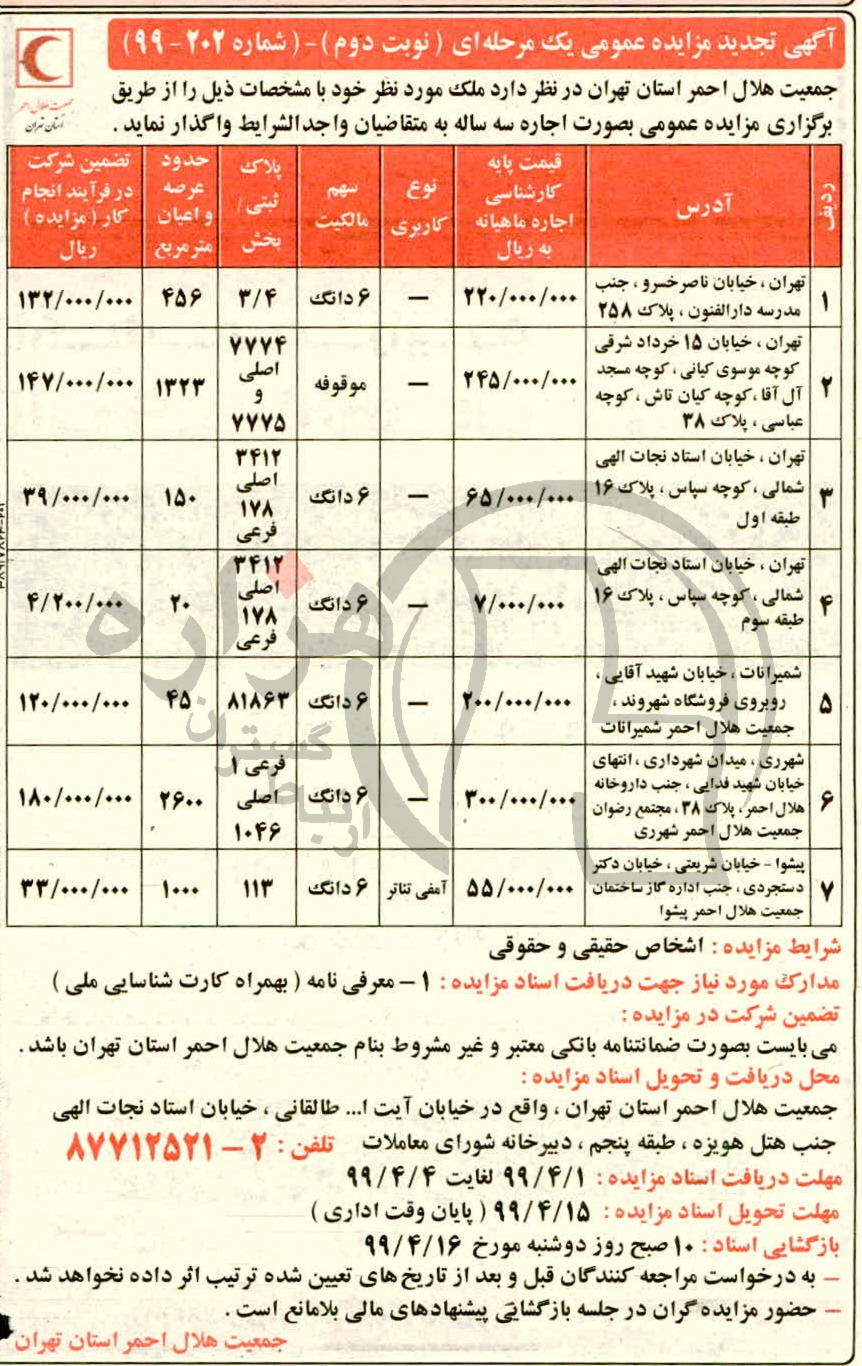 آگهی تجدید مزایده عمومی یک مرحله‌ای ( نوبت دوم ) - ( شماره ۲۰۲ - ۹۹ )
جمعیت هلال احمر
استان تهران
جمعیت هلال احمر استان تهران در نظر دارد ملک مورد نظر خود با مشخصات ذیل را از طریق
برگزاری مزایده عمومی بصورت اجاره سه ساله به متقاضیان واجدالشرایط واگذار نماید .
ردیف | آدرس | قیمت پایه کارشناسی اجاره ماهیانه به ریال | نوع کاربری | سهم مالکیت | پلاک ثبتی / بخش | حدود عرصه و اعیان مترمربع | تضمین شرکت در فرآیند انجام کار ( مزایده ) ریال
۱ | تهران ، خیابان ناصرخسرو ، جنب مدرسه دارالفنون ، پلاک ۲۵۸ | ۲۲۰/۰۰۰/۰۰۰ | — | ۶ دانگ | ۳/۴ | ۴۵۶ | ۱۳۲/۰۰۰/۰۰۰
۲ | تهران ، خیابان ۱۵ خرداد شرقی کوچه موسوی کیانی ، کوچه مسجد آل آقا ، کوچه کیان تاش ، کوچه عباسی ، پلاک ۳۸ | ۲۴۵/۰۰۰/۰۰۰ | — | موقوفه | ۷۷۷۴ اصلی و ۷۷۷۵ | ۱۳۲۳ | ۱۴۷/۰۰۰/۰۰۰
۳ | تهران ، خیابان استاد نجات الهی شمالی ، کوچه سپاس ، پلاک ۱۶ طبقه اول | ۶۵/۰۰۰/۰۰۰ | — | ۶ دانگ | ۳۴۱۲ اصلی ۱۷۸ فرعی | ۱۵۰ | ۳۹/۰۰۰/۰۰۰
۴ | تهران ، خیابان استاد نجات الهی شمالی ، کوچه سپاس ، پلاک ۱۶ طبقه سوم | ۷/۰۰۰/۰۰۰ | — | ۶ دانگ | ۳۴۱۲ اصلی ۱۷۸ فرعی | ۲۰ | ۴/۲۰۰/۰۰۰
۵ | شمیرانات ، خیابان شهید آقایی ، روبروی فروشگاه شهروند ، جمعیت هلال احمر شمیرانات | ۲۰۰/۰۰۰/۰۰۰ | — | ۶ دانگ | ۸۱۸۶۳ | ۴۵ | ۱۲۰/۰۰۰/۰۰۰
۶ | شهرری ، میدان شهرداری ، انتهای خیابان شهید فدایی ، جنب داروخانه هلال احمر ، پلاک ۳۸ ، مجتمع رضوان جمعیت هلال احمر شهرری | ۳۰۰/۰۰۰/۰۰۰ | — | ۶ دانگ | فرعی ۱ اصلی ۱۰۴۶ | ۲۶۰۰ | ۱۸۰/۰۰۰/۰۰۰
۷ | پیشوا - خیابان شریعتی ، خیابان دکتر دستجردی ، جنب اداره گاز ساختمان جمعیت هلال احمر پیشوا | ۵۵/۰۰۰/۰۰۰ | آمفی تئاتر | ۶ دانگ | ۱۱۳ | ۱۰۰۰ | ۳۳/۰۰۰/۰۰۰
هزاره
ارتباط گستران
شرایط مزایده : اشخاص حقیقی و حقوقی
مدارک مورد نیاز جهت دریافت اسناد مزایده : ۱ - معرفی نامه ( بهمراه کارت شناسایی ملی )
تضمین شرکت در مزایده :
می بایست بصورت ضمانتنامه بانکی معتبر و غیر مشروط بنام جمعیت هلال احمر استان تهران باشد .
محل دریافت و تحویل اسناد مزایده :
جمعیت هلال احمر استان تهران ، واقع در خیابان آیت ا... طالقانی ، خیابان استاد نجات الهی
جنب هتل هویزه ، طبقه پنجم ، دبیرخانه شورای معاملات تلفن : ۲ - ۸۷۷۱۲۵۲۱
مهلت دریافت اسناد مزایده : ۹۹/۴/۱ لغایت ۹۹/۴/۴
مهلت تحویل اسناد مزایده : ۹۹/۴/۱۵ ( پایان وقت اداری )
بازگشایی اسناد : ۱۰ صبح روز دوشنبه مورخ ۹۹/۴/۱۶
— به درخواست مراجعه کنندگان قبل و بعد از تاریخ های تعیین شده ترتیب اثر داده نخواهد شد .
— حضور مزایده گران در جلسه بازگشایی پیشنهادهای مالی بلامانع است .
جمعیت هلال احمر استان تهران